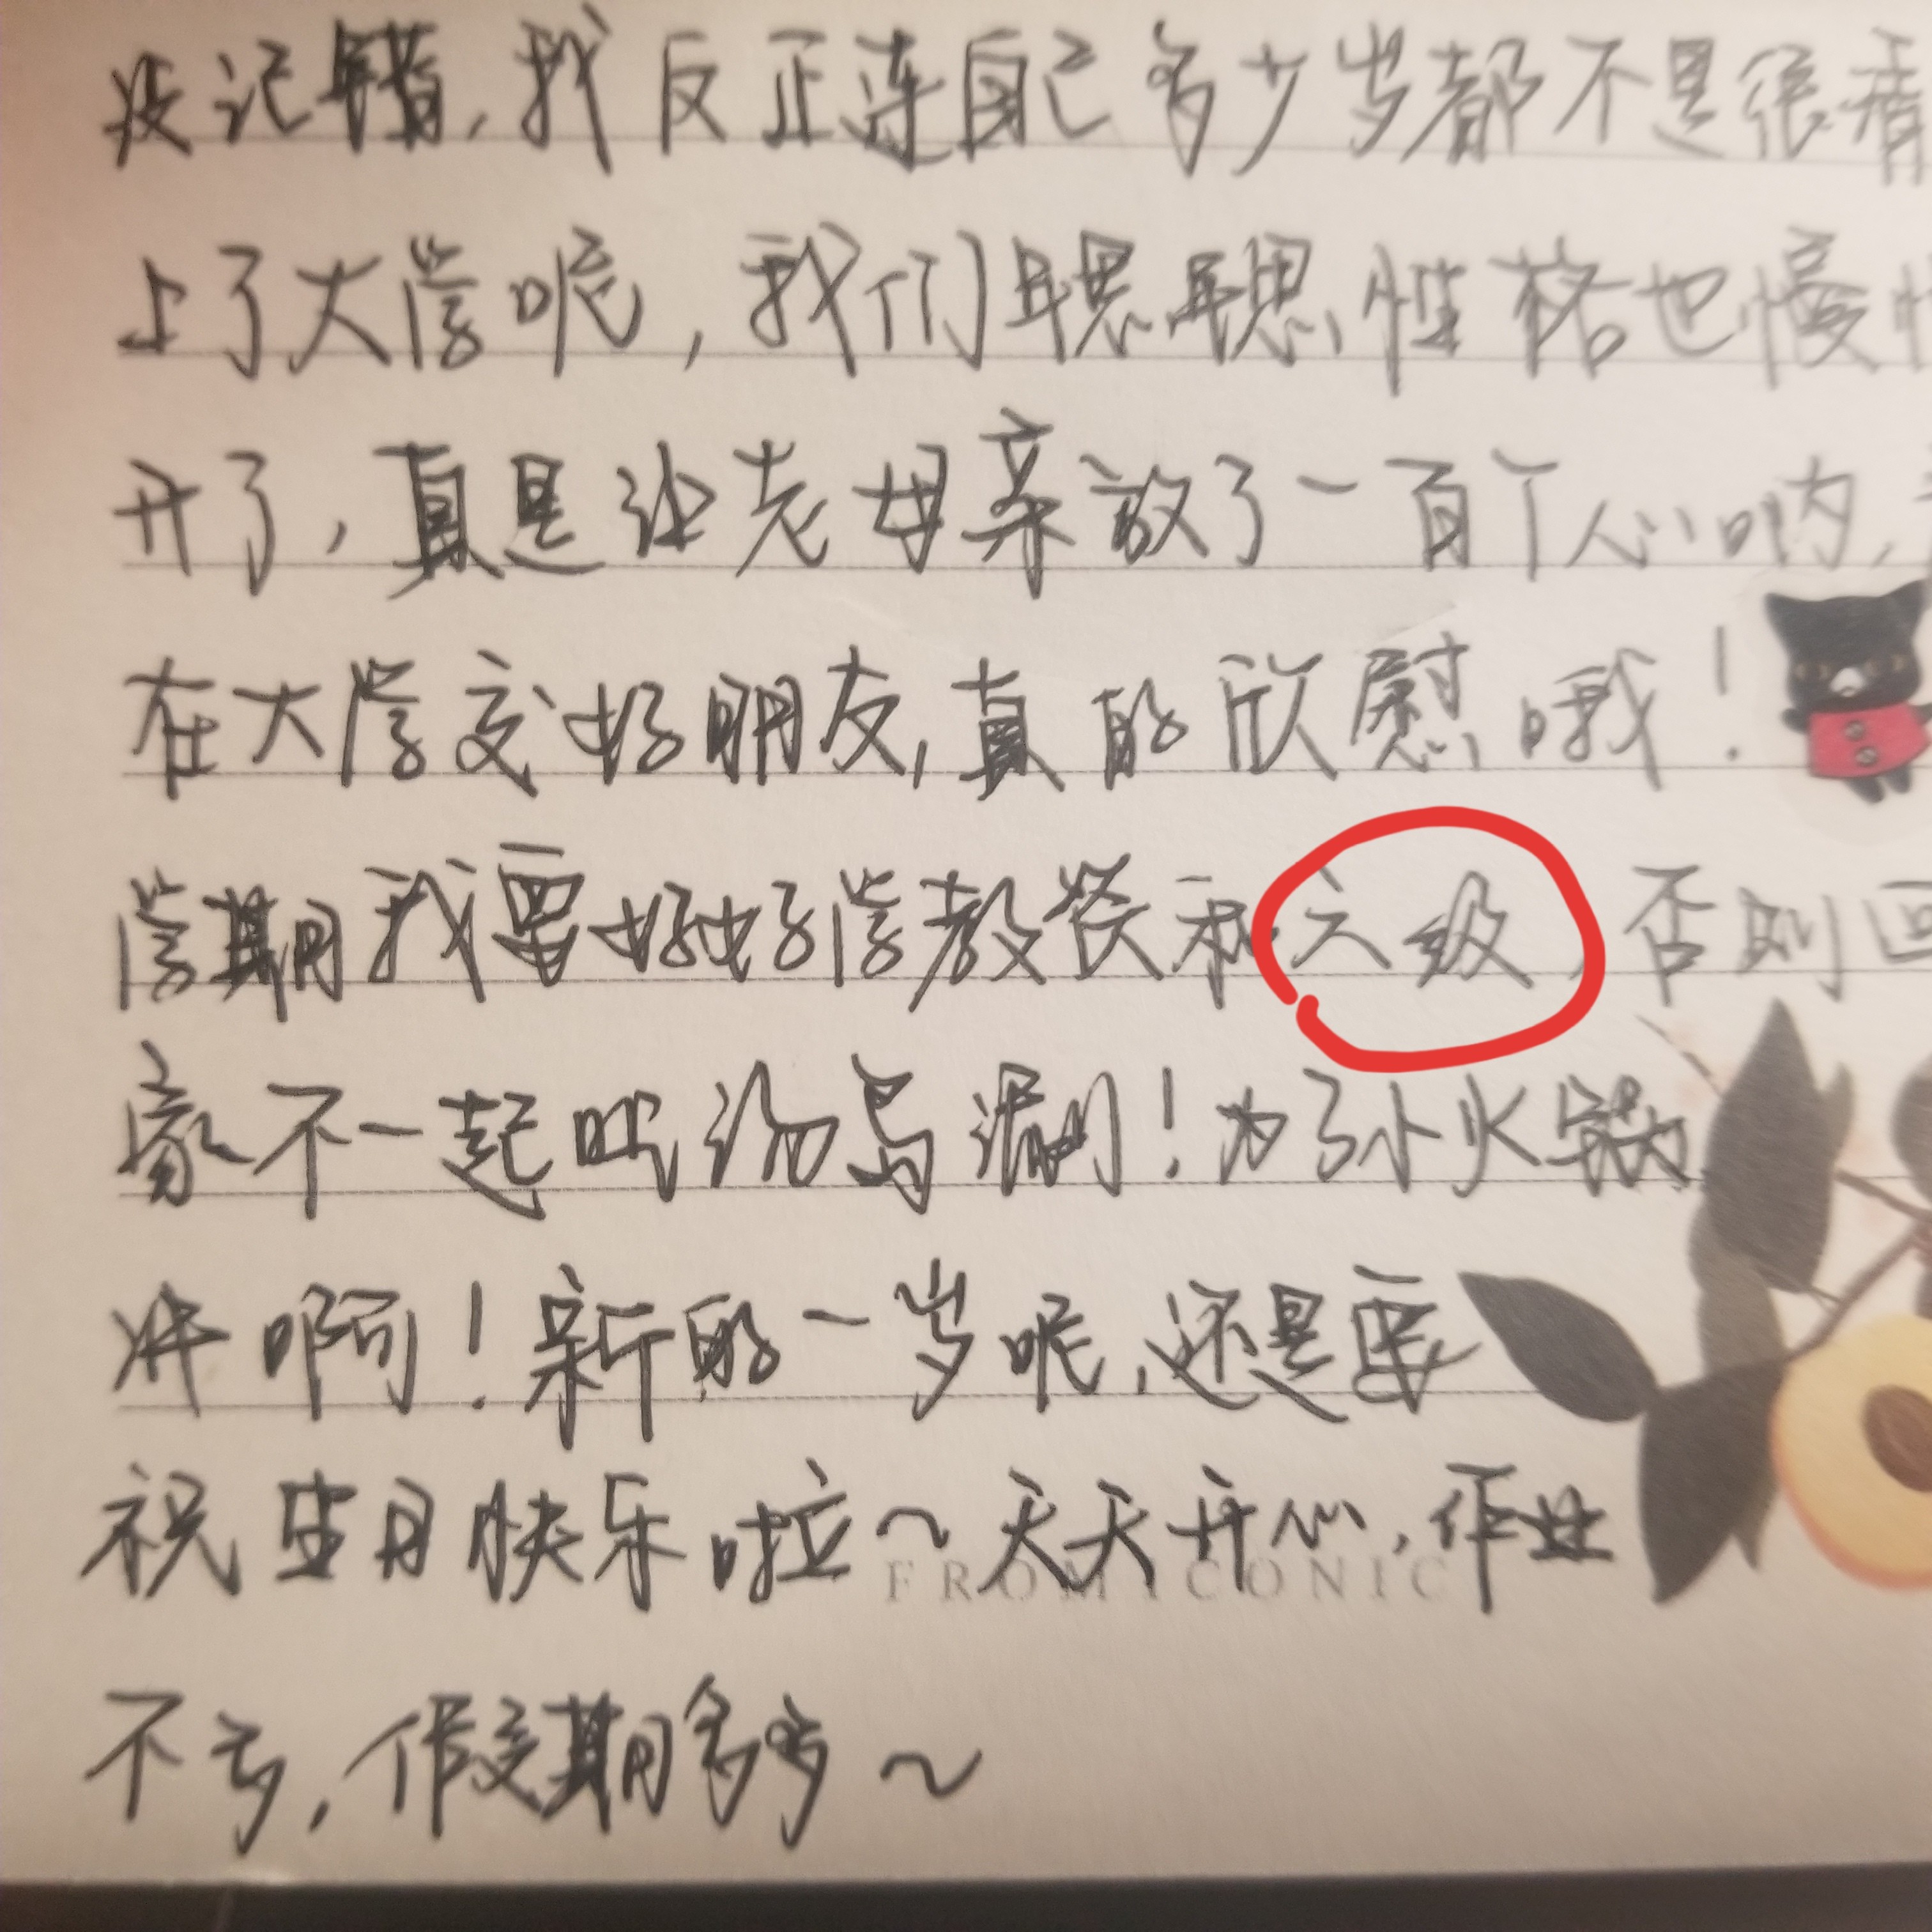 没记错，我反正连自己多少岁都不是很看
上了大学呢，我们聪聪性格也慢
开了，真是让老母亲放了一百个心呐，
在大学交好朋友，真的欣慰哦！
学期我要好好学教资和六级，否则回
家不一起吃汤鸟涮！为了小火锅
拼啊！新的一岁呢，还是要
祝生日快乐啦～天天开心，作业
FROM ICONIC
不亏，假期多多～